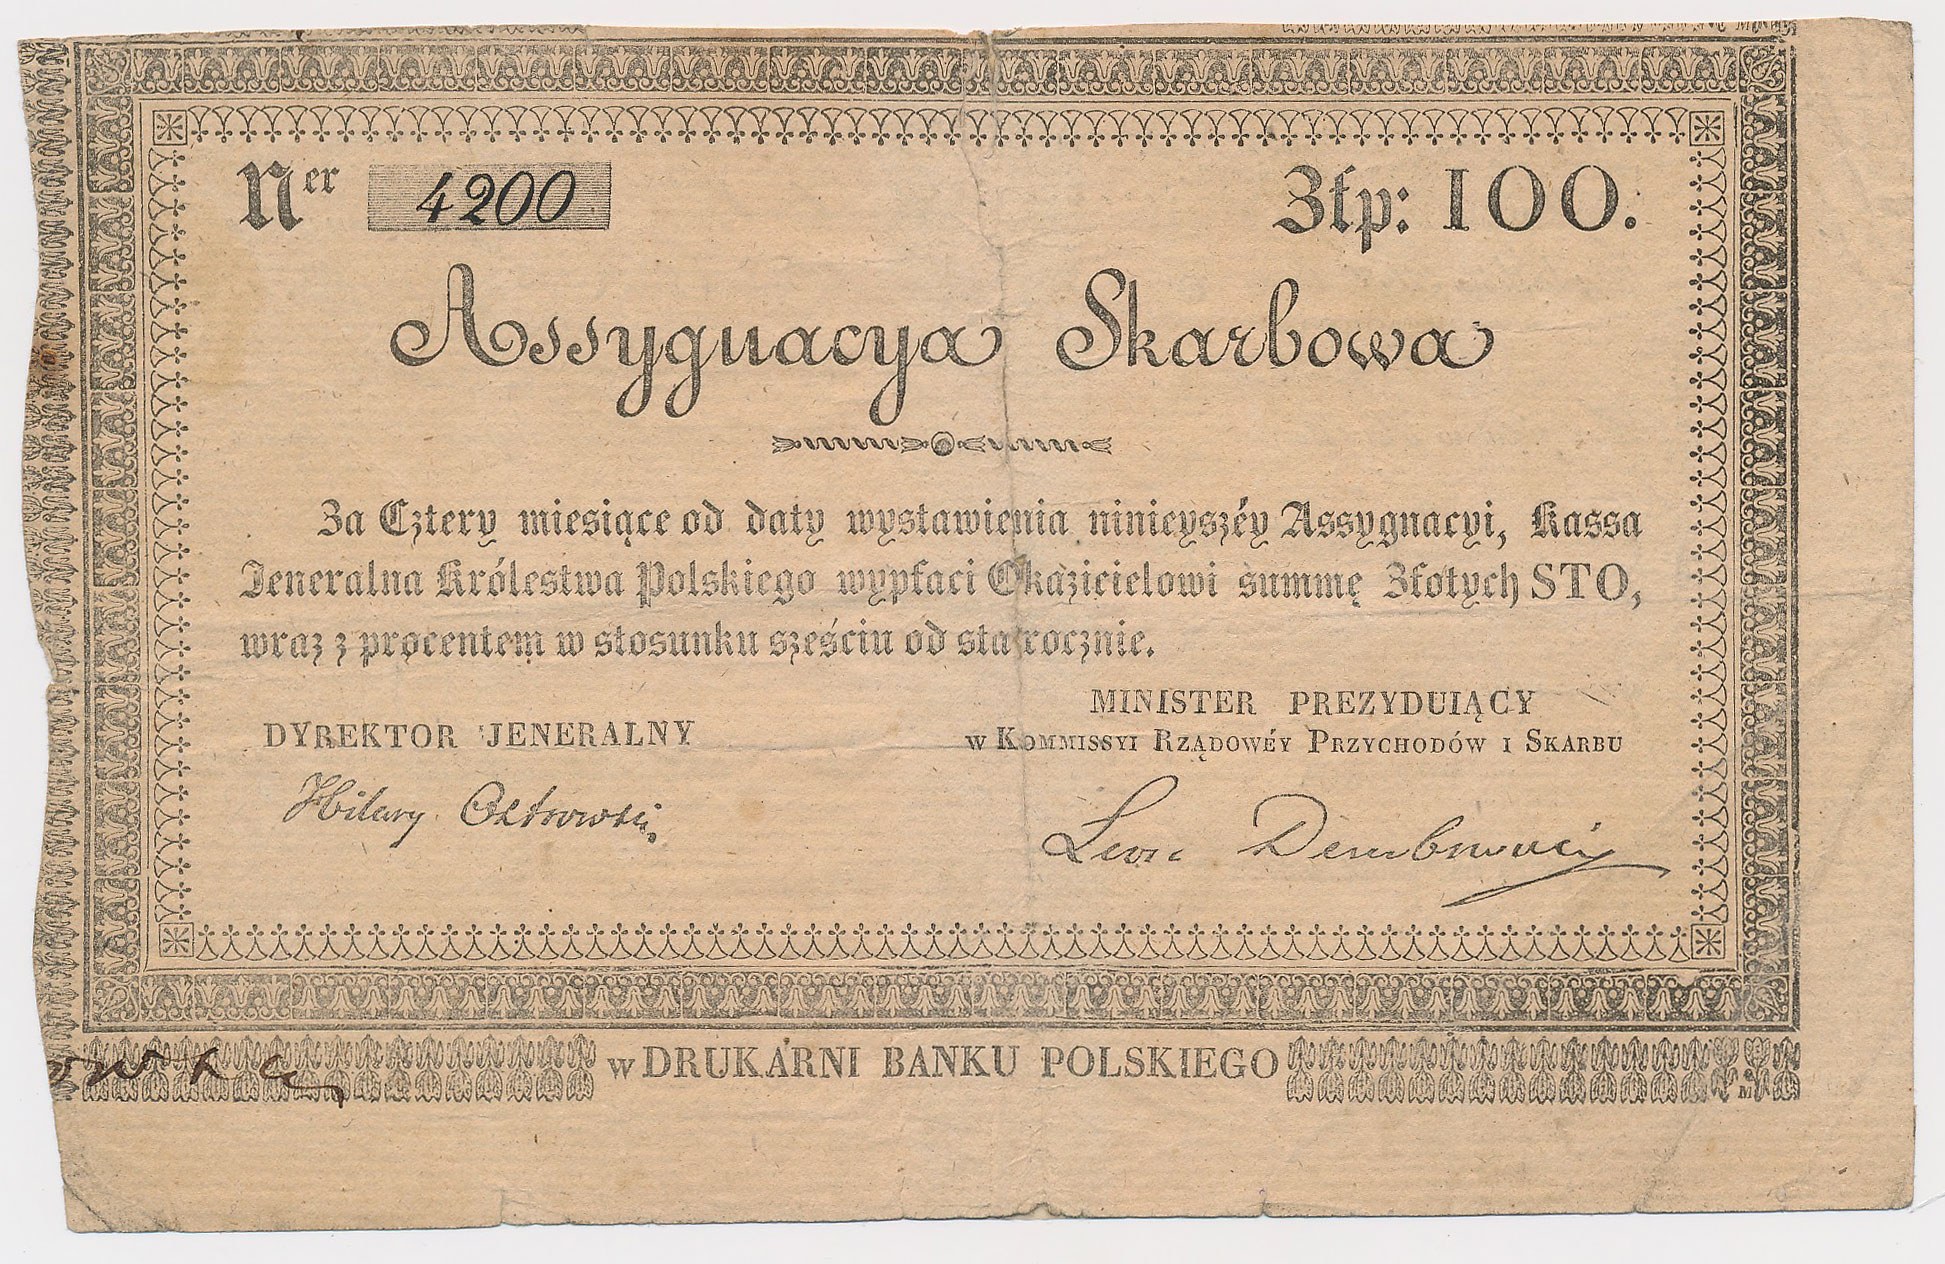 Ner 4200 Złp: 100.
Assygnacya Skarbowa
Za Cztery miesiące od daty wystawienia ninieyszéy Assygnacyi, Kassa
Jeneralna Królestwa Polskiego wypłaci Okazicielowi summę Złotych STO,
wraz z procentem w stosunku sześciu od sta rocznie.
DYREKTOR JENERALNY
Hilary Ostrowski
MINISTER PREZYDUIĄCY
w KOMMISSYI RZĄDOWÉY PRZYCHODÓW I SKARBU
Leon Dembowski
w DRUKARNI BANKU POLSKIEGO
M